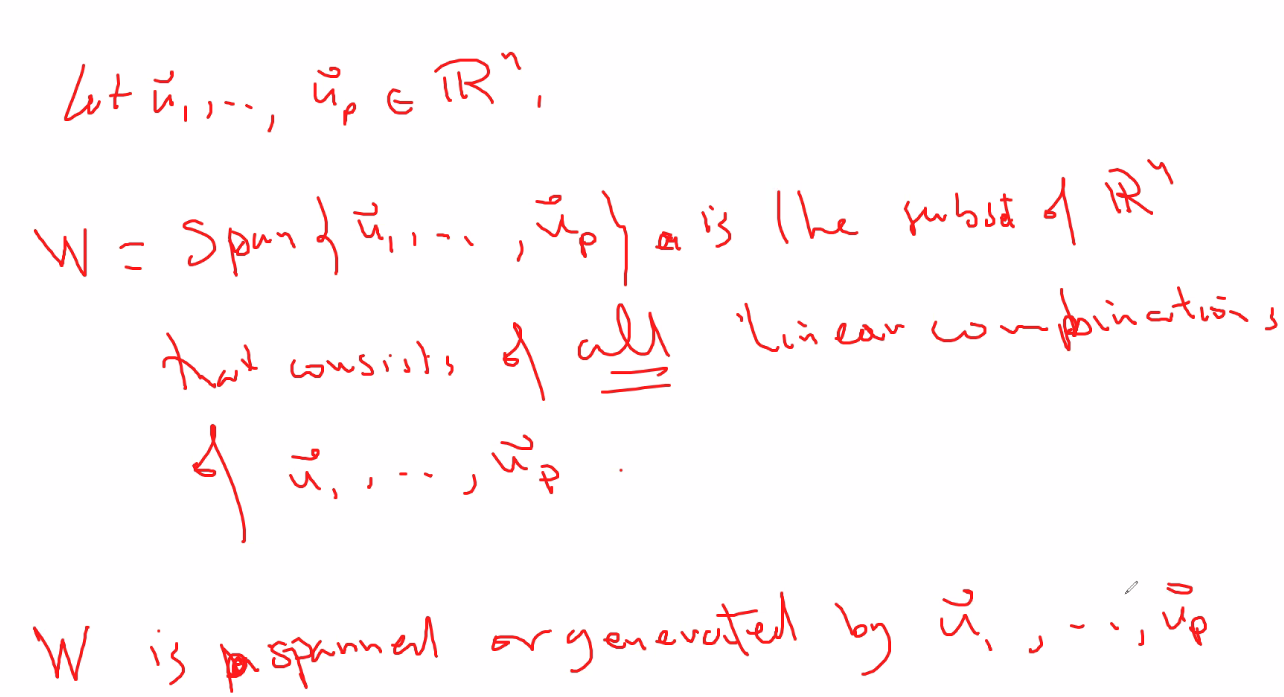 Let u⃗₁, ..., u⃗ₚ ∈ ℝⁿ.
W = Span{u⃗₁, ..., u⃗ₚ} is the subset of ℝⁿ
that consists of all linear combinations
of u⃗₁, ..., u⃗ₚ.
W is spanned or generated by u⃗₁, ..., u⃗ₚ